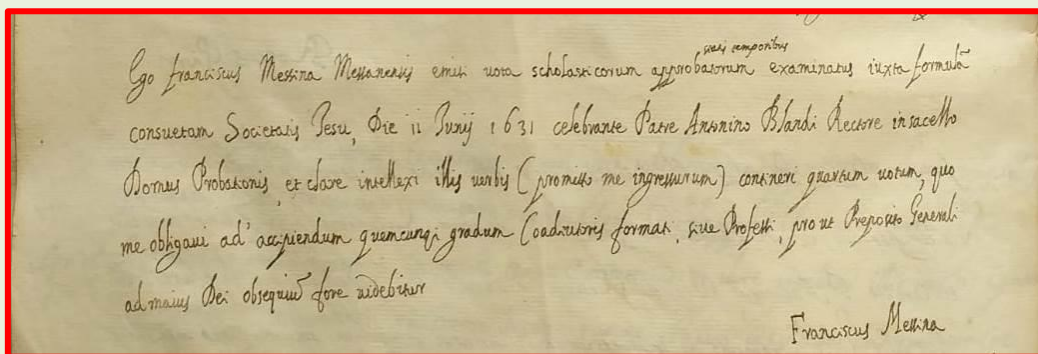 suis temporibus
Ego franciscus Messina Messanensis emisi uota scholasticorum approbatorum examinatus iuxta formulā
consuetam Societatis Jesu, Die 11 Junij 1631 celebrante Patre Antonino Blandi Rectore in sacello
Domus Probationis, et clare intellexi illis uerbis (promitto me ingressurum) contineri quartum uotum, quo
me obligaui ad accipiendum quemcunq; gradum Coadiutoris formati, siue Professi, prout Preposito Generali
ad maius Dei obsequiū fore uidebitur
Franciscus Messina